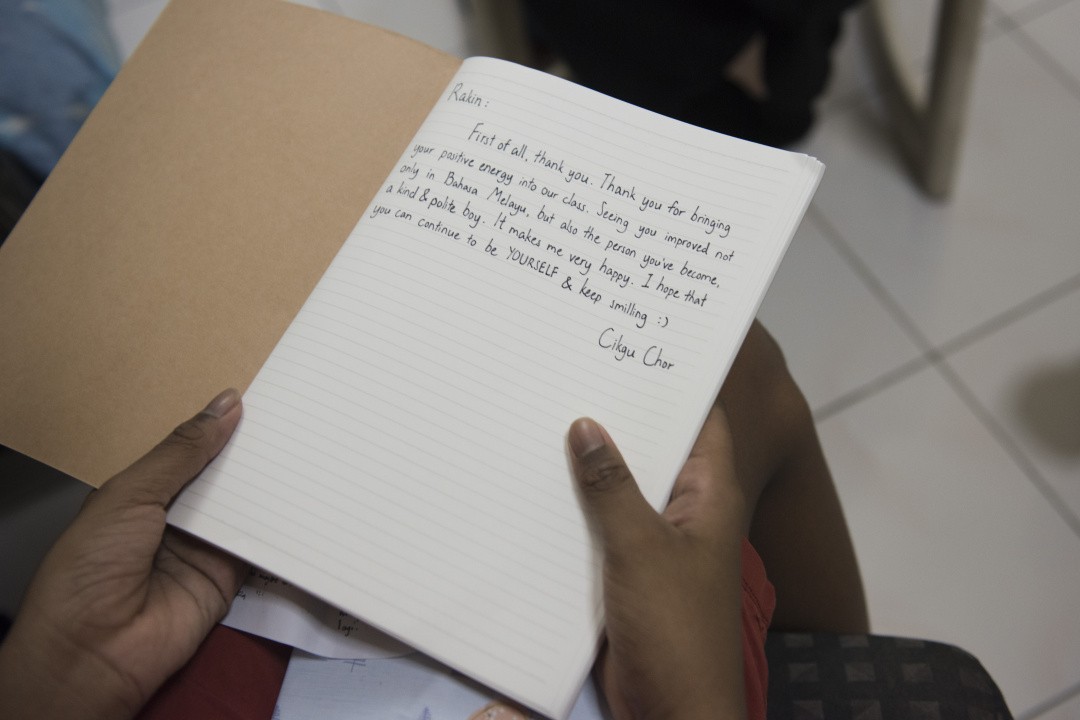 Rakin:
First of all, thank you. Thank you for bringing
your positive energy into our class. Seeing you improved not
only in Bahasa Melayu, but also the person you've become,
a kind & polite boy. It makes me very happy. I hope that
you can continue to be YOURSELF & keep smilling :)
Cikgu Chor